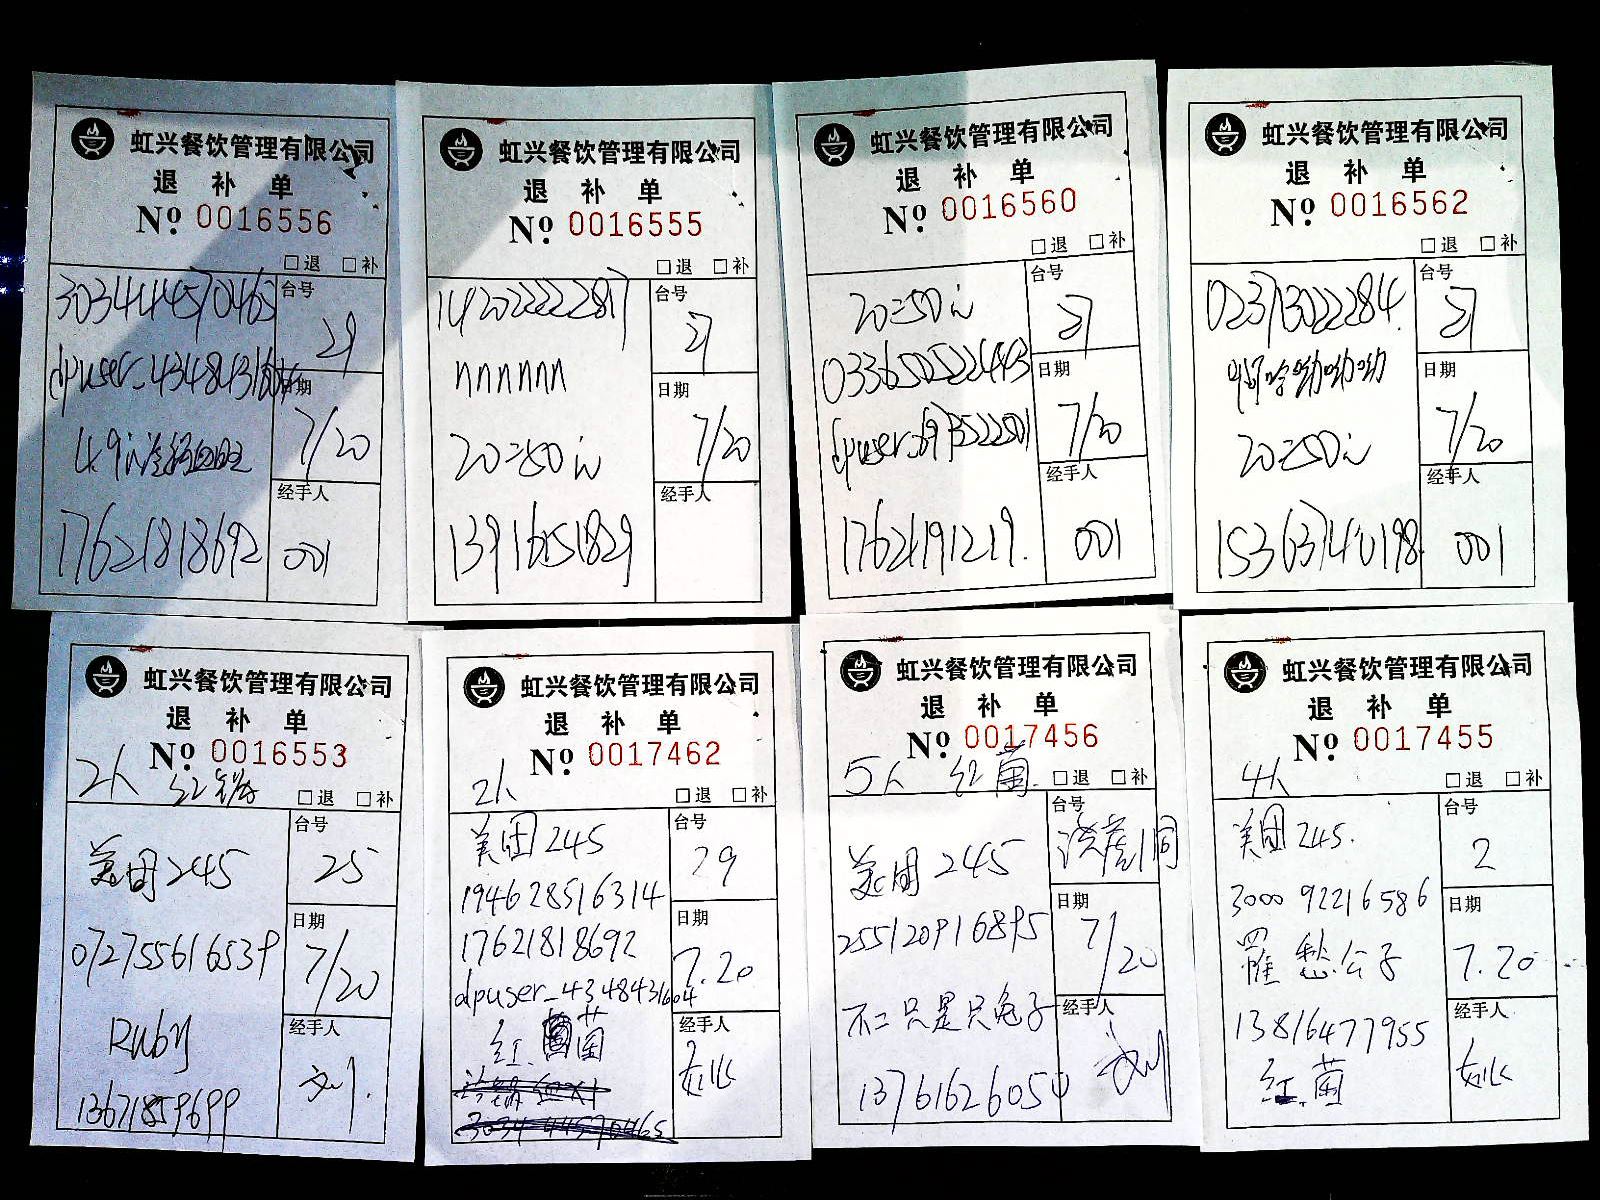 虹兴餐饮管理有限公司
退 补 单
Nº 0016556
□退 □补
303444570465
台号
29
dpuser_4348431604
日期
7/20
17621818692
经手人
001
虹兴餐饮管理有限公司
退 补 单
Nº 0016555
□退 □补
台号
nnnnnn
日期
7/20
20=50
13916151829
经手人
虹兴餐饮管理有限公司
退 补 单
Nº 0016560
□退 □补
20=50
台号
日期
7/20
17621191219.
经手人
001
虹兴餐饮管理有限公司
退 补 单
Nº 0016562
□退 □补
023713022284.
台号
日期
7/20
20=50
经手人
001
虹兴餐饮管理有限公司
退 补 单
Nº 0016553
2人 红锅
□退 □补
美团245
台号
25
072755616539
日期
7/20
Ruby
13671859699
经手人
虹兴餐饮管理有限公司
退 补 单
Nº 0017462
2人
□退 □补
美团245
台号
29
194628516314
17621818692
日期
7.20
dpuser_4348431604
红 菌
经手人
虹兴餐饮管理有限公司
退 补 单
Nº 0017456
5人 红菌
□退 □补
台号
美团245
255120916895
日期
7/20
不二只是只兔子
13761626050
经手人
虹兴餐饮管理有限公司
退 补 单
Nº 0017455
4人
□退 □补
美团245.
台号
2
3000 92216586
日期
7.20
罹愁公子
13816477955
红菌
经手人